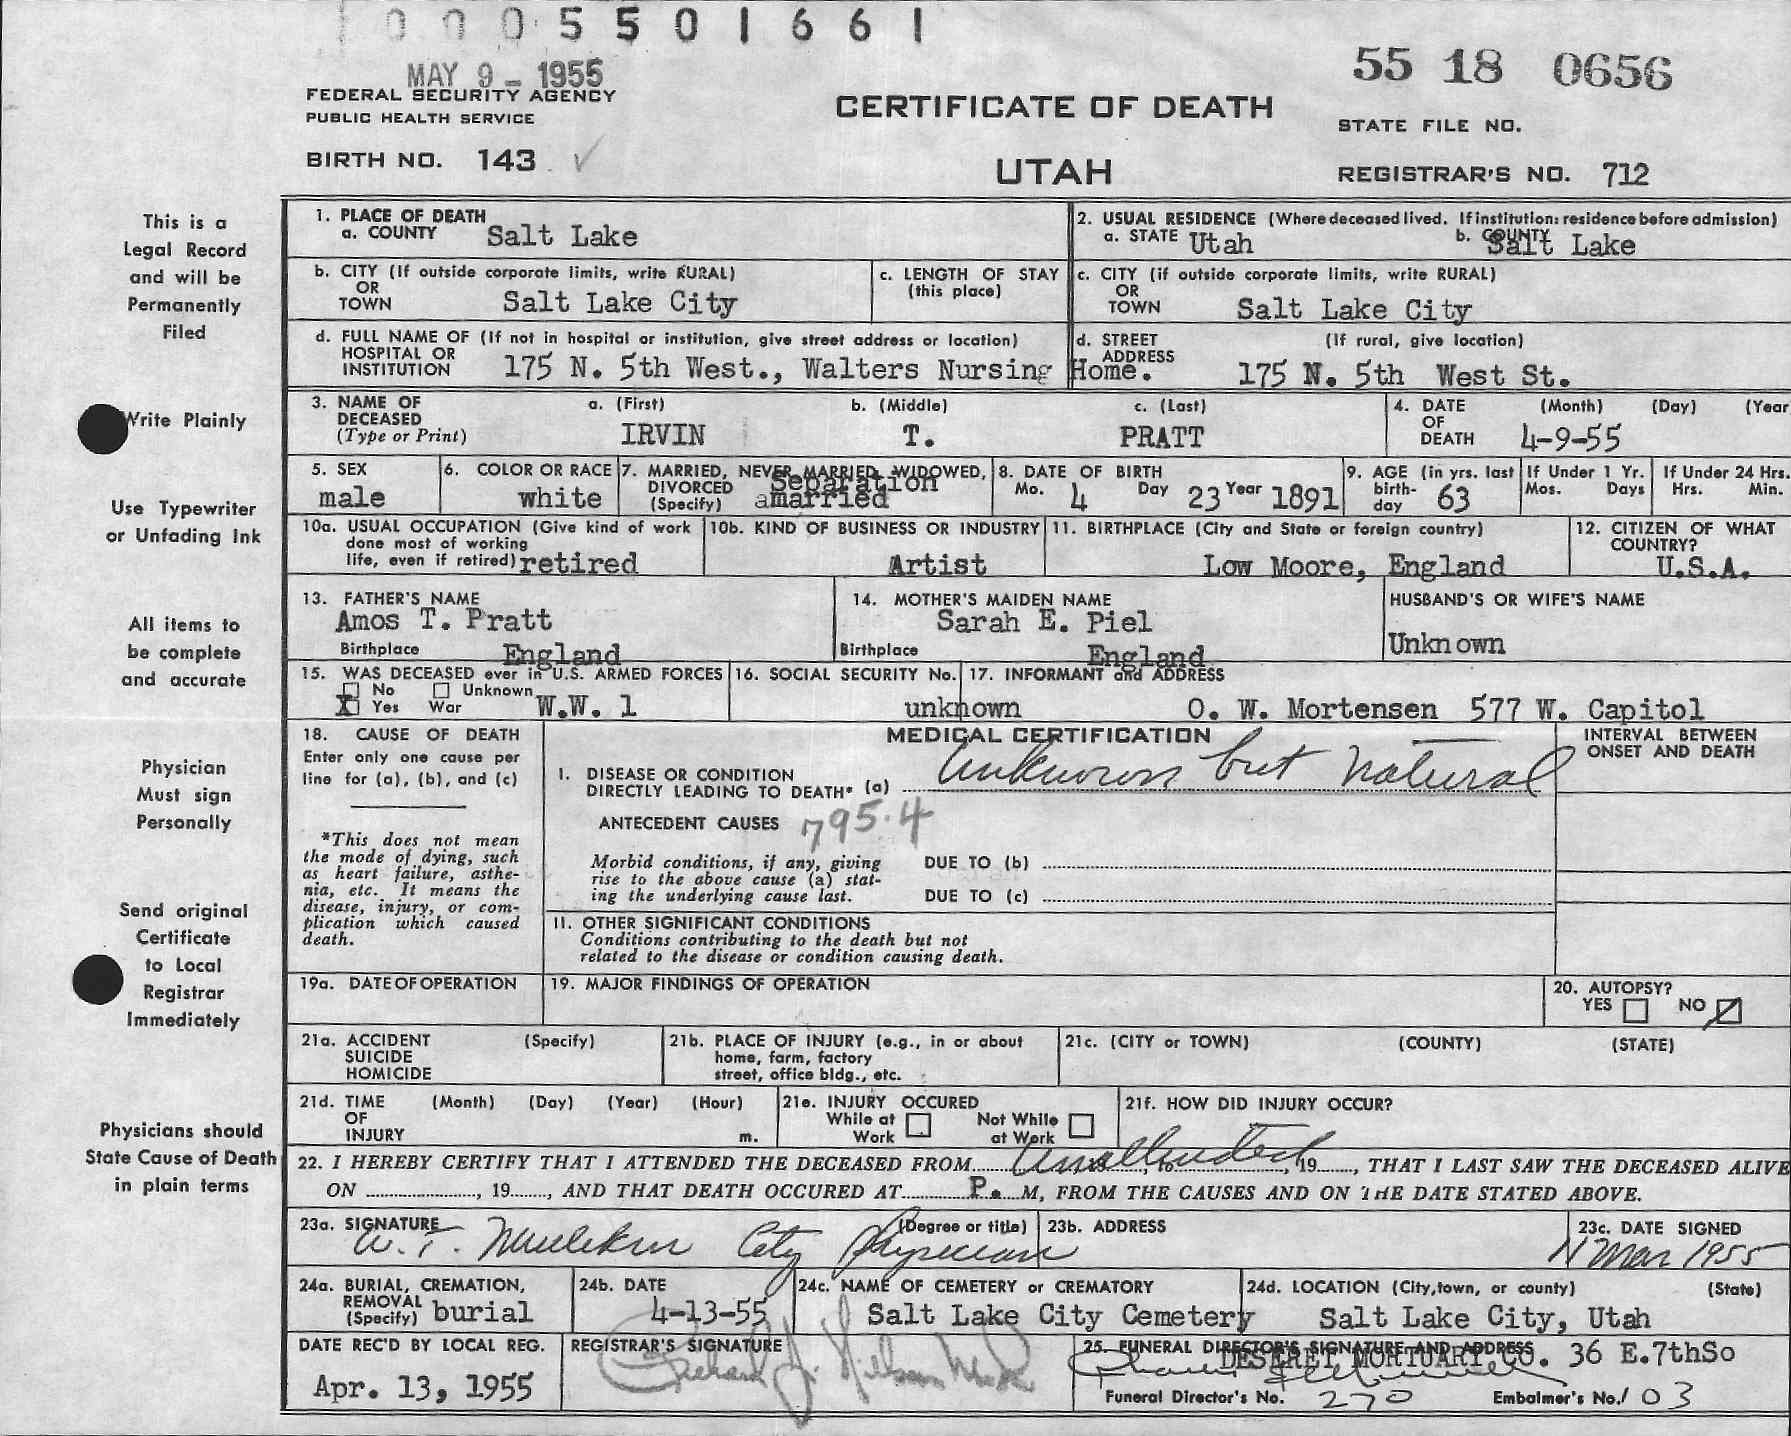 0 0 0 5 5 0 1 6 6 1
MAY 9 - 1955
55 18 0656
FEDERAL SECURITY AGENCY
PUBLIC HEALTH SERVICE
CERTIFICATE OF DEATH
STATE FILE NO.
BIRTH NO. 143
UTAH
REGISTRAR'S NO. 712
This is a
Legal Record
and will be
Permanently
Filed
Write Plainly
Use Typewriter
or Unfading Ink
All items to
be complete
and accurate
Physician
Must sign
Personally
Send original
Certificate
to Local
Registrar
Immediately
Physicians should
State Cause of Death
in plain terms
1. PLACE OF DEATH
a. COUNTY Salt Lake
2. USUAL RESIDENCE (Where deceased lived. If institution: residence before admission)
a. STATE Utah b. COUNTY Salt Lake
b. CITY (If outside corporate limits, write RURAL)
OR
TOWN Salt Lake City
c. LENGTH OF STAY
(this place)
c. CITY (if outside corporate limits, write RURAL)
OR
TOWN Salt Lake City
d. FULL NAME OF (If not in hospital or institution, give street address or location)
HOSPITAL OR
INSTITUTION 175 N. 5th West., Walters Nursing Home.
d. STREET (If rural, give location)
ADDRESS
175 N. 5th West St.
3. NAME OF a. (First) b. (Middle) c. (Last)
DECEASED
(Type or Print) IRVIN T. PRATT
4. DATE (Month) (Day) (Year
OF
DEATH 4-9-55
5. SEX
male
6. COLOR OR RACE
white
7. MARRIED, NEVER MARRIED, WIDOWED,
DIVORCED Separation
(Specify) married
8. DATE OF BIRTH
Mo. 4 Day 23 Year 1891
9. AGE (in yrs. last
birth-
day 63
If Under 1 Yr.
Mos. Days
If Under 24 Hrs.
Hrs. Min.
10a. USUAL OCCUPATION (Give kind of work
done most of working
life, even if retired) retired
10b. KIND OF BUSINESS OR INDUSTRY
Artist
11. BIRTHPLACE (City and State or foreign country)
Low Moore, England
12. CITIZEN OF WHAT
COUNTRY?
U.S.A.
13. FATHER'S NAME
Amos T. Pratt
Birthplace England
14. MOTHER'S MAIDEN NAME
Sarah E. Piel
Birthplace England
HUSBAND'S OR WIFE'S NAME
Unknown
15. WAS DECEASED ever in U.S. ARMED FORCES
No Unknown
X Yes War W.W. 1
16. SOCIAL SECURITY No.
unknown
17. INFORMANT and ADDRESS
O. W. Mortensen 577 W. Capitol
18. CAUSE OF DEATH
Enter only one cause per
line for (a), (b), and (c)
*This does not mean
the mode of dying, such
as heart failure, asthe-
nia, etc. It means the
disease, injury, or com-
plication which caused
death.
MEDICAL CERTIFICATION
INTERVAL BETWEEN
ONSET AND DEATH
I. DISEASE OR CONDITION
DIRECTLY LEADING TO DEATH* (a) Unknown but natural
ANTECEDENT CAUSES 795.4
Morbid conditions, if any, giving
rise to the above cause (a) stat-
ing the underlying cause last.
DUE TO (b)
DUE TO (c)
II. OTHER SIGNIFICANT CONDITIONS
Conditions contributing to the death but not
related to the disease or condition causing death.
19a. DATE OF OPERATION
19. MAJOR FINDINGS OF OPERATION
20. AUTOPSY?
YES NO
21a. ACCIDENT (Specify)
SUICIDE
HOMICIDE
21b. PLACE OF INJURY (e.g., in or about
home, farm, factory
street, office bldg., etc.
21c. (CITY or TOWN) (COUNTY) (STATE)
21d. TIME (Month) (Day) (Year) (Hour)
OF
INJURY m.
21e. INJURY OCCURED
While at Work Not While at Work
21f. HOW DID INJURY OCCUR?
22. I HEREBY CERTIFY THAT I ATTENDED THE DECEASED FROM Unattended, 19, THAT I LAST SAW THE DECEASED ALIVE
ON, 19, AND THAT DEATH OCCURED AT P. M, FROM THE CAUSES AND ON THE DATE STATED ABOVE.
23a. SIGNATURE (Degree or title)
W. F. City Physician
23b. ADDRESS
23c. DATE SIGNED
11 Mar 1955
24a. BURIAL, CREMATION,
REMOVAL
(Specify) burial
24b. DATE
4-13-55
24c. NAME OF CEMETERY or CREMATORY
Salt Lake City Cemetery
24d. LOCATION (City, town, or county) (State)
Salt Lake City, Utah
DATE REC'D BY LOCAL REG.
Apr. 13, 1955
REGISTRAR'S SIGNATURE
25. FUNERAL DIRECTOR'S SIGNATURE AND ADDRESS
DESERET MORTUARY CO. 36 E.7thSo
Funeral Director's No. 270 Embalmer's No. 103